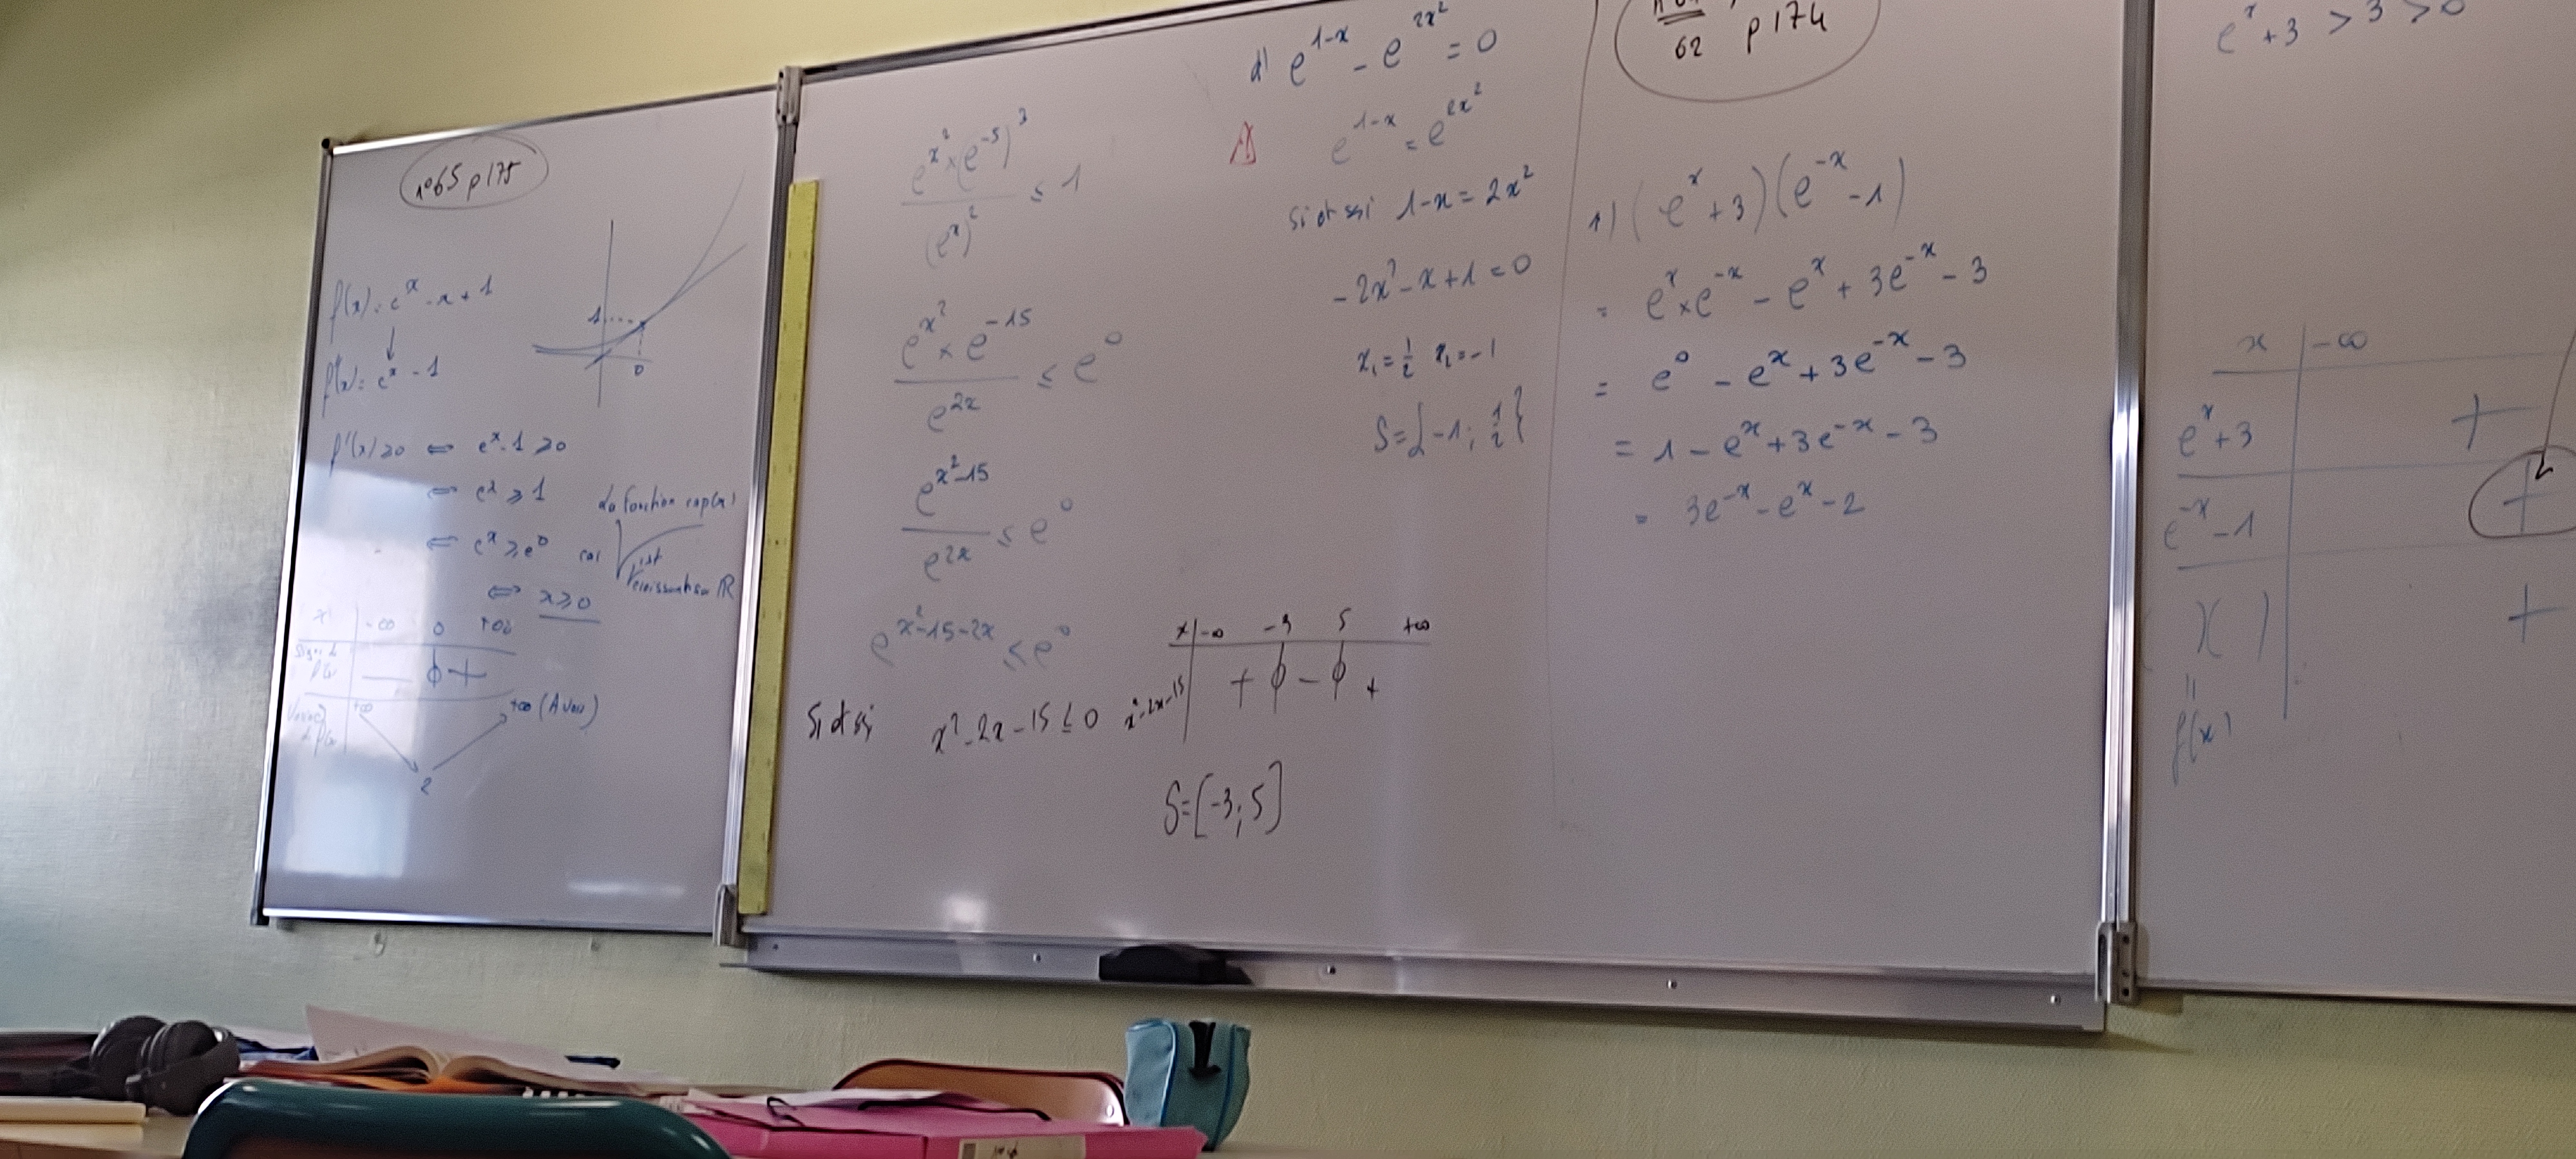 n°65 p175
1
0
f(x) = e^x - x + 1
↓
f'(x) = e^x - 1
f'(x) ≥ 0 ⇔ e^x - 1 ≥ 0
⇔ e^x ≥ 1
⇔ e^x ≥ e^0 car la fonction exp(x) est croissante sur ℝ
⇔ x ≥ 0
x -∞ 0 +∞
- 0 +
+∞ 2 +∞
(e^{x^2} × (e^{-5})^3) / (e^x)^2 ≤ 1
(e^{x^2} × e^{-15}) / e^{2x} ≤ e^0
e^{x^2-15} / e^{2x} ≤ e^0
e^{x^2-15-2x} ≤ e^0
Si et ssi x^2 - 2x - 15 ≤ 0
x -∞ -3 5 +∞
x^2-2x-15 + 0 - 0 +
S = [-3; 5]
d) e^{1-x} - e^{2x^2} = 0
e^{1-x} = e^{2x^2}
Si et ssi 1-x = 2x^2
-2x^2 - x + 1 = 0
x_1 = 1/2 x_2 = -1
S = {-1; 1/2}
62 p174
1) (e^x + 3)(e^{-x} - 1)
= e^x × e^{-x} - e^x + 3e^{-x} - 3
= e^0 - e^x + 3e^{-x} - 3
= 1 - e^x + 3e^{-x} - 3
= 3e^{-x} - e^x - 2
e^x + 3 > 3 > 0
x -∞
e^x + 3 +
e^{-x} - 1 +
( )( ) +
=
f(x)